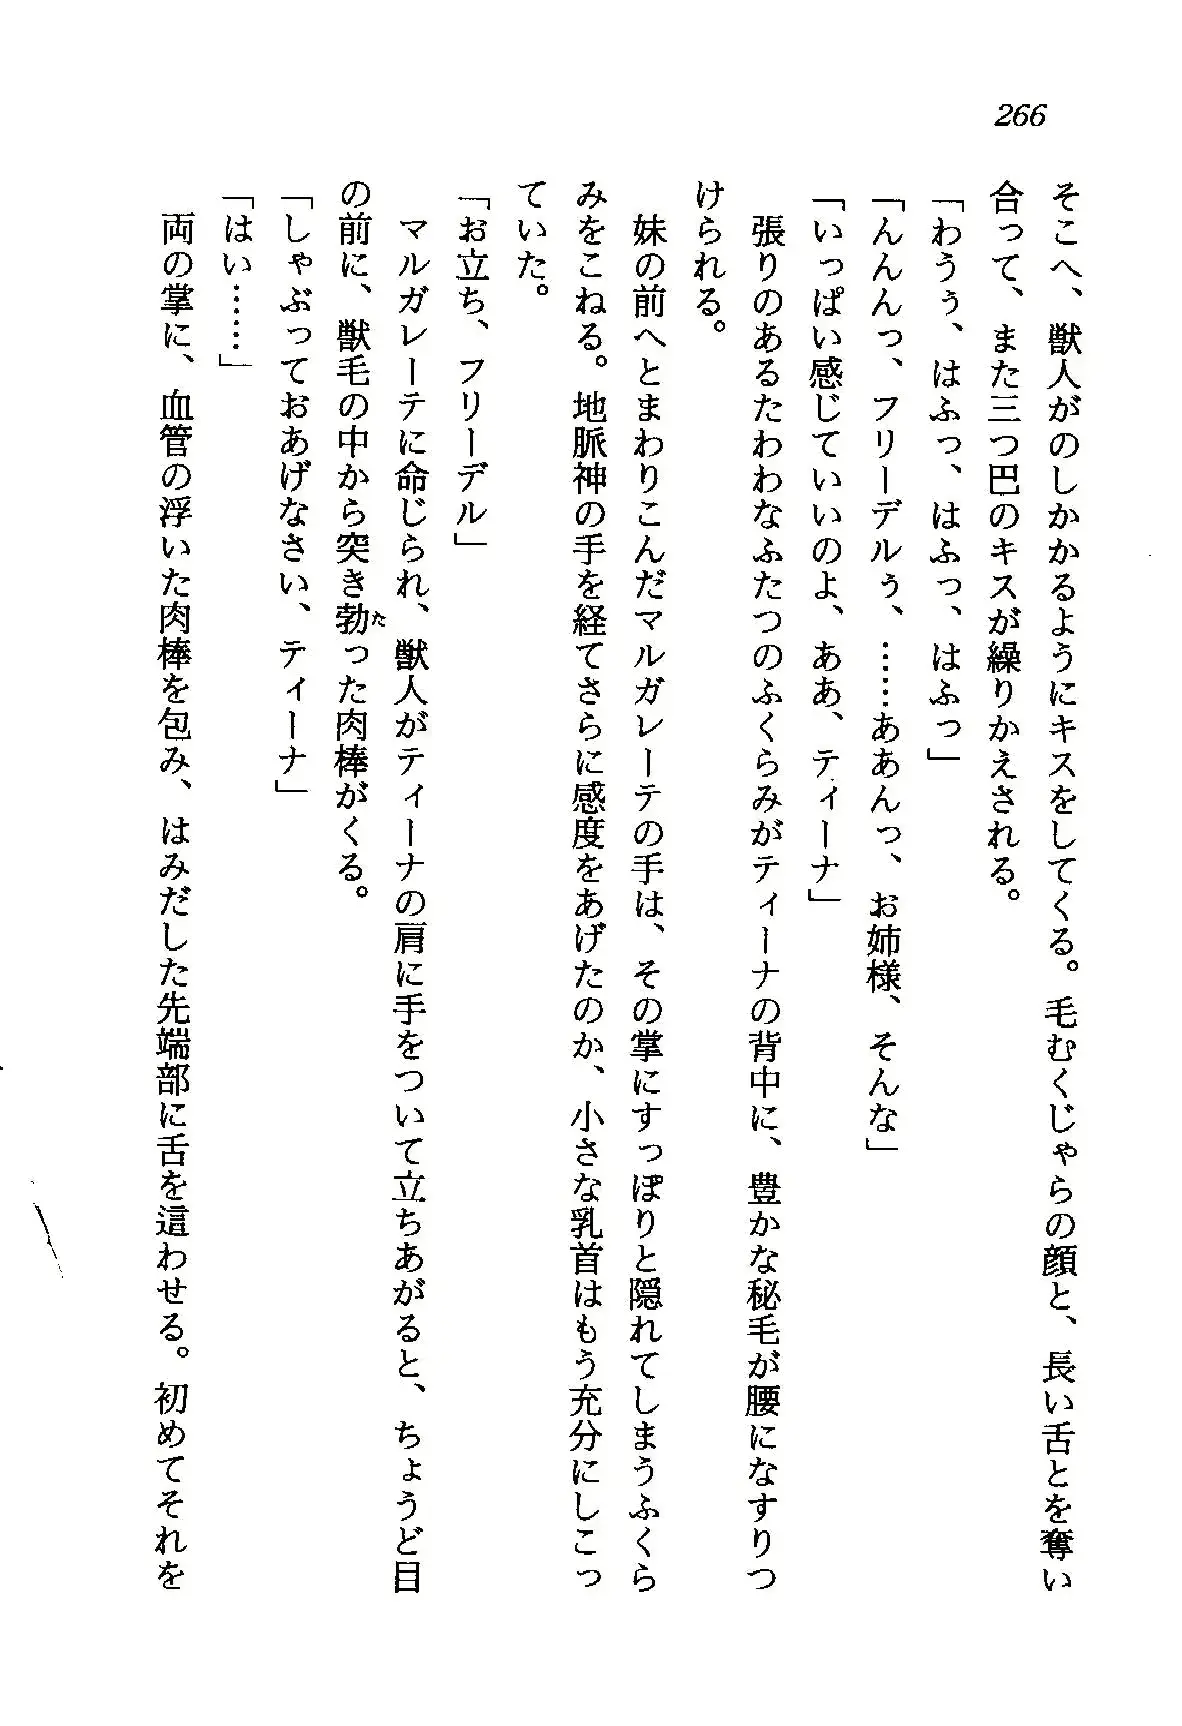 266
そこへ、獣人がのしかかるようにキスをしてくる。毛むくじゃらの顔と、長い舌とを奪い
合って、また三つ巴のキスが繰りかえされる。
「わうぅ、はふっ、はふっ、はふっ」
「んんんっ、フリーデルぅ、……ああんっ、お姉様、そんな」
「いっぱい感じていいのよ、ああ、ティーナ」
張りのあるたわわなふたつのふくらみがティーナの背中に、豊かな秘毛が腰になすりつ
けられる。
妹の前へとまわりこんだマルガレーテの手は、その掌にすっぽりと隠れてしまうふくら
みをこねる。地脈神の手を経てさらに感度をあげたのか、小さな乳首はもう充分にしこっ
ていた。
「お立ち、フリーデル」
マルガレーテに命じられ、獣人がティーナの肩に手をついて立ちあがると、ちょうど目
の前に、獣毛の中から突き勃った肉棒がくる。
「しゃぶっておあげなさい、ティーナ」
「はい……」
両の掌に、血管の浮いた肉棒を包み、はみだした先端部に舌を這わせる。初めてそれを